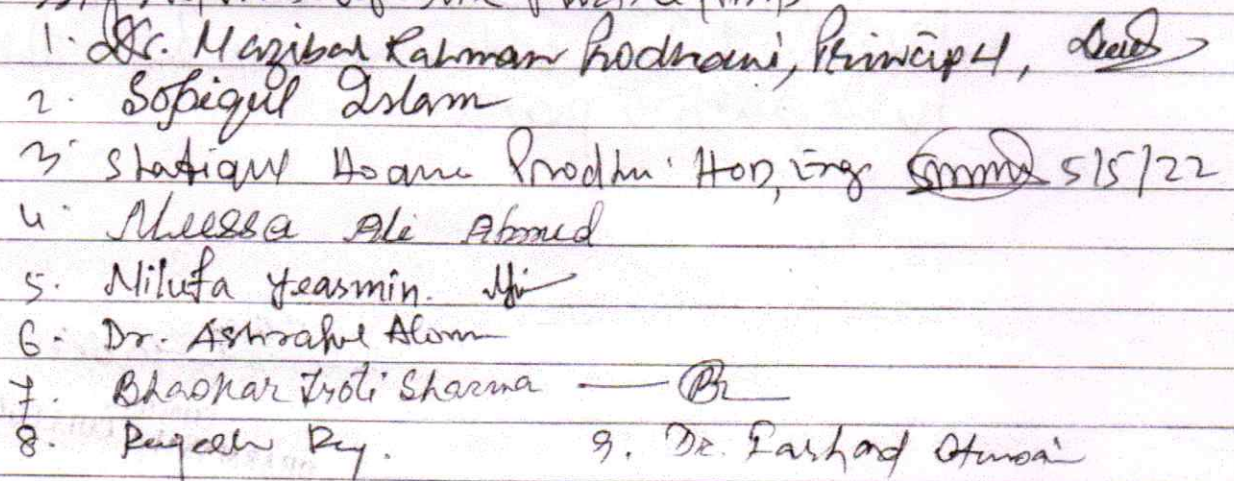 1. Dr. Mazibar Rahman Prodhani, Principal,
2. Sofiqul Islam
3. Shafiqul Hoque Prodhani HOD, Eng 5/5/22
4. Meessa Ali Ahmed
5. Nilufa Yeasmin.
6. Dr. Ashraful Alom
7. Bhaskar Jyoti Sharma
8. Ray. 9. Dr. Farhad